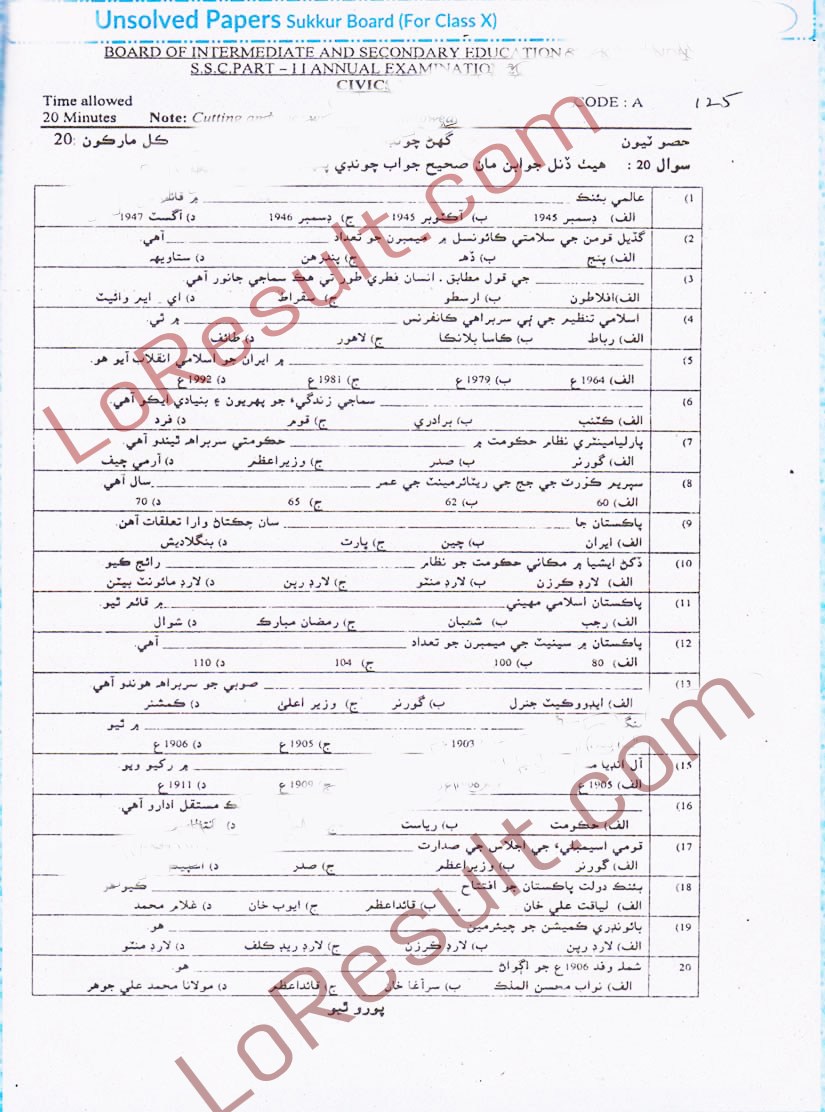 Unsolved Papers Sukkur Board (For Class X)
BOARD OF INTERMEDIATE AND SECONDARY EDUCATION
S.S.C.PART – I I ANNUAL EXAMINATION
CIVIC
Time allowed CODE : A 125
20 Minutes Note: Cutting and
حصو ٽيون گهڻ ڪل مارڪون :20
سوال 20 : هيٺ ڏنل جوابن مان صحيح جواب چونڊي
1) عالمي بئنڪ ۾ قائم
الف) ڊسمبر 1945 ب) آڪٽوبر 1945 ج) ڊسمبر 1946 د) آگسٽ 1947
2) گڏيل قومن جي سلامتي ڪائونسل ۾ ميمبرن جو تعداد ____ آهي.
الف) پنج ب) ڏهه ج) پندرهن د) ستاويهه
3) ____ جي قول مطابق ـ انسان فطري طور تي هڪ سماجي جانور آهي
الف)افلاطون ب) ارسطو ج) سقراط د) اي ـ ايم وائيٽ
4) اسلامي تنظيم جي ٻي سربراهي ڪانفرنس ____ ۾ ٿي.
الف) رباط ب) ڪاسا بلانڪا ج) لاهور د) طائف
5) ____ ۾ ايران جو اسلامي انقلاب آيو هو.
الف) 1964 ع ب) 1979 ع ج) 1981 ع د) 1992 ع
6) ____ سماجي زندگيءَ جو پهريون ۽ بنيادي ايڪو آهي.
الف) ڪٽنب ب) برادري ج) قوم د) فرد
7) پارليامينٽري نظام حڪومت ۾ ____ حڪومتي سربراهه ٿيندو آهي.
الف) گورنر ب) صدر ج) وزيراعظم د) آرمي چيف
8) سپريم ڪورٽ جي جج جي ريٽائرمينٽ جي عمر ____ سال آهي
الف) 60 ب) 62 ج) 65 د) 70
9) پاڪستان جا ____ سان ڇڪتاڻ وارا تعلقات آهن.
الف) ايران ب) چين ج) ڀارت د) بنگلاديش
10) ڏکڻ ايشيا ۾ مڪاني حڪومت جو نظام ____ رائج ڪيو
الف) لارڊ ڪرزن ب) لارڊ منٽو ج) لارڊ رپن د) لارڊ مائونٽ بيٽن
11) پاڪستان اسلامي مهيني ____ ۾ قائم ٿيو.
الف) رجب ب) شعبان ج) رمضان مبارڪ د) شوال
12) پاڪستان ۾ سينيٽ جي ميمبرن جو تعداد ____ آهي.
الف) 80 ب) 100 ج) 104 د) 110
13) ____ صوبي جو سربراهه هوندو آهي
الف) ايڊووڪيٽ جنرل ب) گورنر ج) وزير اعليٰ د) ڪمشنر
____ ۾ ٿيو
1903 ج) 1905 ع د) 1906 ع
15) آل انڊيا ____ ۾ رکيو ويو.
الف) 1905 ع ج) 1909 ع د) 1911 ع
16) مستقل ادارو آهي.
الف) حڪومت ب) رياست د)
17) قومي اسيمبليءَ جي اجلاس جي صدارت
الف) گورنر ب) وزيراعظم ج) صدر د)
18) بئنڪ دولت پاڪستان جو افتتاح ____
الف) لياقت علي خان ب) قائداعظم ج) ايوب خان د) غلام محمد
19) بائونڊري ڪميشن جو چيئرمين ____ هو.
الف) لارڊ رپن ب) لارڊ ڪرزن ج) لارڊ ريڊ ڪلف د) لارڊ منٽو
20 شملا وفد 1906 ع جو اڳواڻ ____ هو.
الف) نواب محسن الملڪ ب) سرآغا خان ج) قائداعظم د) مولانا محمد علي جوهر
پورو ٿيو
LoResult.com
LoResult.com